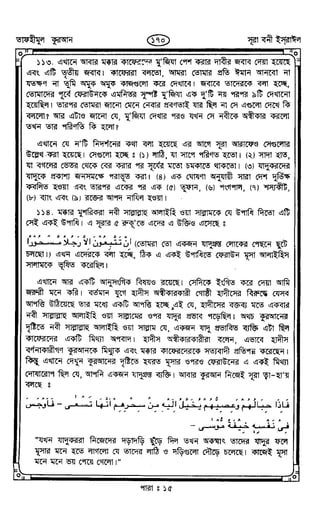 তাফহীমুল কুরআন
১৭০
সূরা বনী ইসরাঈল
১১৩. এখানে আবার মক্কার কাফেরদের মু'জিযা পেশ করার দাবীর জবাব দেয়া হয়েছে
এবং এটি তৃতীয় জবাব। কাফেররা বলতো, আমরা তোমার প্রতি ঈমান আনবো না
যতক্ষণ না তুমি অমুক অমুক কাজগুলো করে দেখাবে। জবাবে তাদেরকে বলা হচ্ছে,
তোমাদের পূর্বে ফেরাউনকে এমনিতর সুস্পষ্ট মু'জিযা এক দু'টি নয় পরপর ৯টি দেখানো
হয়েছিল। তারপর তোমরা জানো মেনে নেবার প্রবণতাই যার ছিল না সে এগুলো দেখে কি
বললো? আর এটাও জানো যে, মু'জিযা দেখার পরও যখন সে নবীকে অস্বীকার করলো
তখন তার পরিণতি কি হলো?
এখানে যে ন'টি নিদর্শনের কথা বলা হয়েছে এর আগে সূরা আরাফেও সেগুলোর
উল্লেখ করা হয়েছে। সেগুলো হচ্ছে ঃ (১) লাঠি, যা সাপে পরিণত হতো। (২) সাদা হাত,
যা বগলের ভেতর থেকে বের করার পর সূর্যের মতো চমকাতে থাকতো। (৩) যাদুকরদের
যাদুকে প্রকাশ্য জনসমক্ষে পরাভূত করা। (৪) এক ঘোষণা অনুযায়ী সারা দেশ দুর্ভিক্ষ
কবলিত হওয়া এবং তারপর একের পর এক (৫) তুফান, (৬) পংগপাল, (৭) শস্যকীট,
(৮) ব্যাং এবং (৯) রক্তের আপদ নাযিল হওয়া।
১১৪. মক্কার মুশরিকরা নবী সাল্লাল্লাহু আলাইহি ওয়া সাল্লামকে যে উপাধি দিতো এটি
সেই একই উপাধি। এ সূরার ৫ রুকূ'তে এদের এ উক্তিও এসেছে ঃ
ان تتبعون الا رجلا مسحورا (তোমরা তো একজন যাদুগ্রস্ত লোকের পেছনে ছুটে
চলেছো।) এখন এদেরকে বলা হচ্ছে, ঠিক এ একই উপাধিতে ফেরাউন মূসা আলাইহিস
সালামকে ভূষিত করেছিল।
এখানে আর একটি আনুসংগিক বিষয়ও রয়েছে। সেদিকে ইংগিত করে দেয়া আমি
জরুরী মনে করি। বর্তমান যুগে হাদীস অস্বীকারকারী গোষ্ঠী হাদীসের বিরুদ্ধে যেসব
আপত্তি উঠিয়েছে তার মধ্যে একটি আপত্তি হচ্ছে এই যে, হাদীসের বক্তব্য মতে একবার
নবী সাল্লাল্লাহু আলাইহি ওয়া সাল্লামের ওপর যাদুর প্রভাব পড়েছিল। অথচ কুরআনের
দৃষ্টিতে নবী সাল্লাল্লাহু আলাইহি ওয়া সাল্লাম যে, একজন যাদু প্রভাবিত ব্যক্তি এটা ছিল
কাফেরদের একটি মিথ্যা অপবাদ। হাদীস অস্বীকারকারীরা বলেন, এভাবে হাদীস
বর্ণনাকারীগণ কুরআনকে মিথ্যুক এবং মক্কার কাফেরদেরকে সত্যবাদী প্রতিপন্ন করেছেন।
কিন্তু এখানে দেখুন কুরআনের দৃষ্টিতে হযরত মূসার ওপরও ফেরাউনের এ একই মিথ্যা
দোষারোপ ছিল যে, আপনি একজন যাদুগ্রস্ত ব্যক্তি। আবার কুরআন নিজেই সূরা ত্বা-হা'য়
বলছে ঃ
فاذا حبالهم وعصيهم يخيل اليه من سحرهم انها تسعى - فاوجس
فى نفسه خيفة موسى -
“যখন যাদুকররা নিজেদের দড়াদড়ি ছুঁড়ে দিল তখন অকস্মাত তাদের যাদুর ফলে
মূসার মনে হতে লাগলো যে তাদের লাঠি ও দড়িগুলো দৌড়ে চলেছে। কাজেই মূসা
মনে মনে ভয় পেয়ে গেলো।”
পারা ঃ ১৫